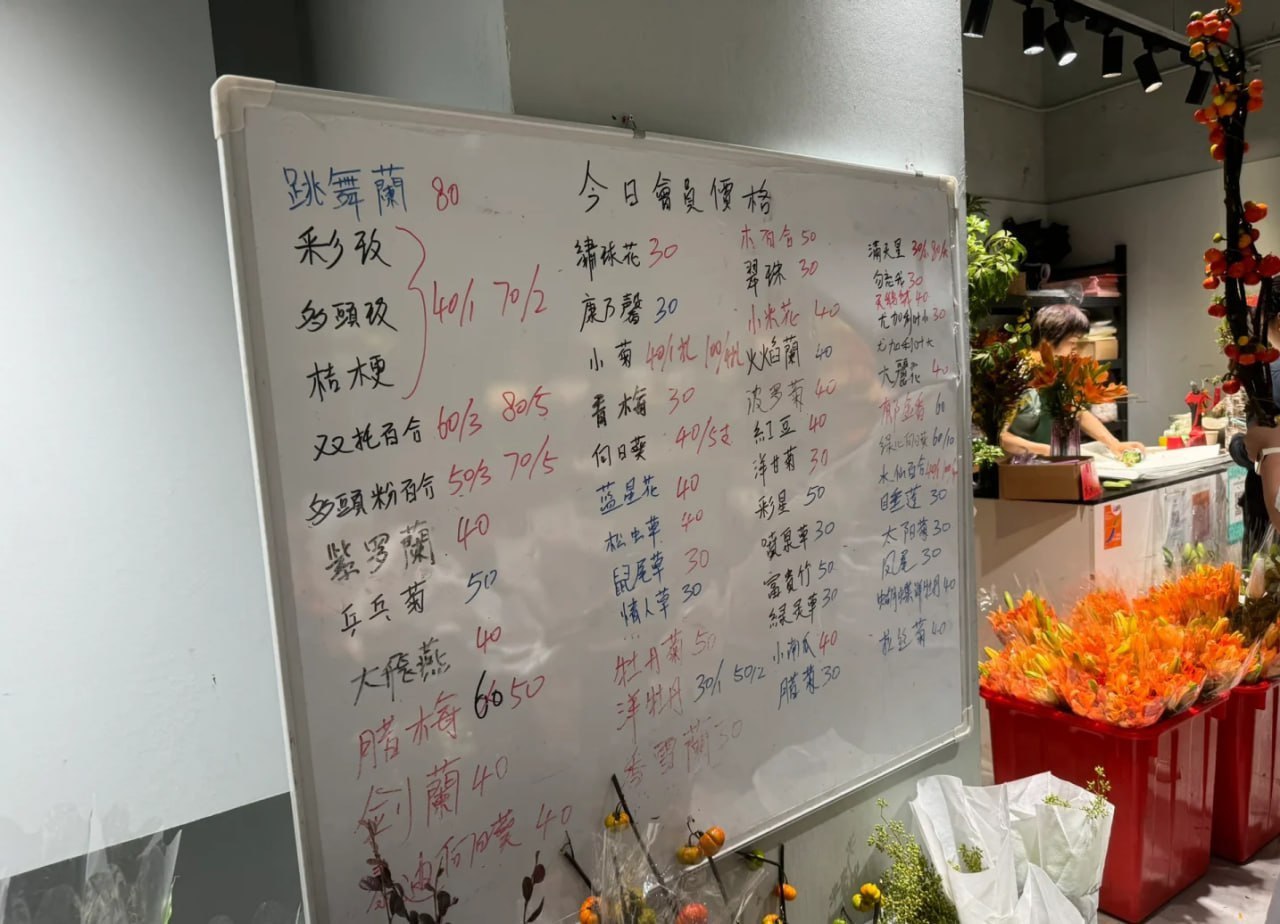 今日會員價格
跳舞蘭 80
彩玫
多頭玫
桔梗
40/1 70/2
双托百合 60/3 80/5
多頭粉百合 50/3 70/5
紫罗蘭 40
乒乓菊 50
大飛燕 40
腊梅 50
剑蘭 40
向日葵 40
繡球花 30
康乃馨 30
小菊 40/1扎
青梅 30
向日葵 40/5支
蓝星花 40
松虫草 40
鼠尾草 30
情人草 30
牡丹菊 50
洋牡丹 30/1 50/2
香雪蘭 30
木百合 50
翠珠 30
小米花 40
火焰蘭 40
波罗菊 40
紅豆 40
洋甘菊 30
彩星 50
噴泉草 30
富貴竹 50
綠毛草 30
小南瓜 40
腊菊 30
滿天星
勿忘我 30
尤加利叶小 30
尤加利叶大
大麗花 40
郁金香 60
水仙百合
睡莲 30
太阳菊 30
凤尾 30
蝴蝶洋牡丹 40
拉丝菊 40